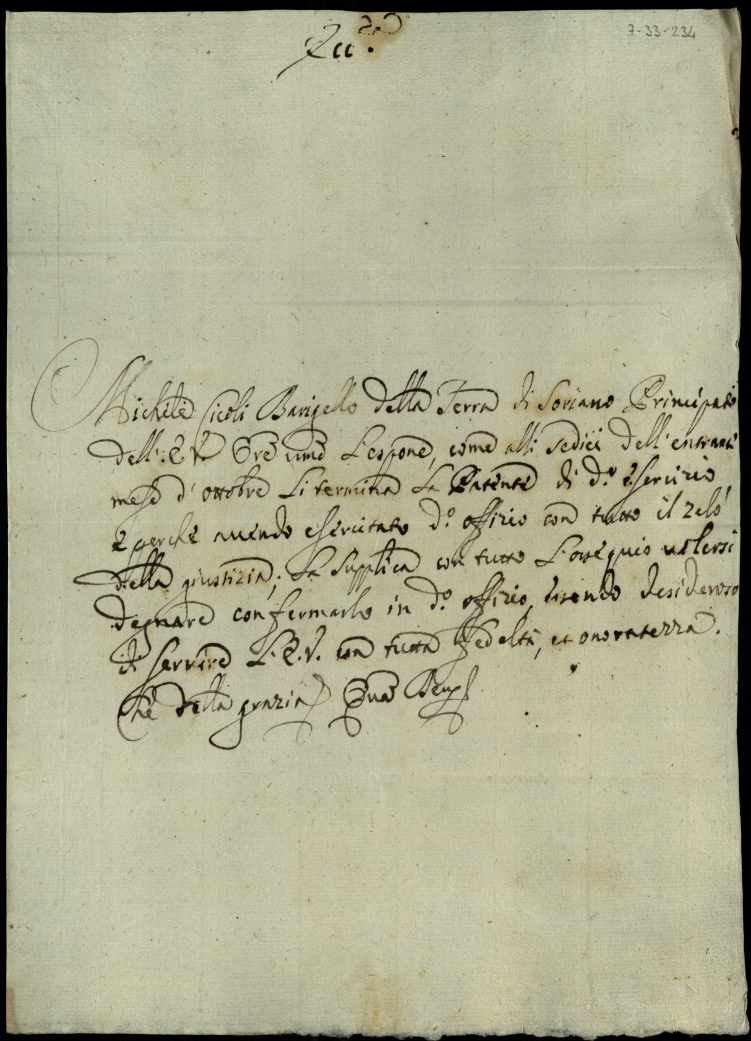 7-33-234
Ecc.mo
Michele Cicoli Barigello della Terra di Soriano Principato
dell'E V. Ore umo L'espone, come alli sedici dell'entrante
mese d'ottobre Li termina La Patente di d.o esercizio
e perche avendo esercitato d.o offizio con tutto il zelo
della giustizia; La supplica con tutto L'ossequio volersi
degnare confermarlo in d.o offizio, essendo desideroso
di servire L'E.V. con tutta fedeltà, et onoratezza.
Che della grazia